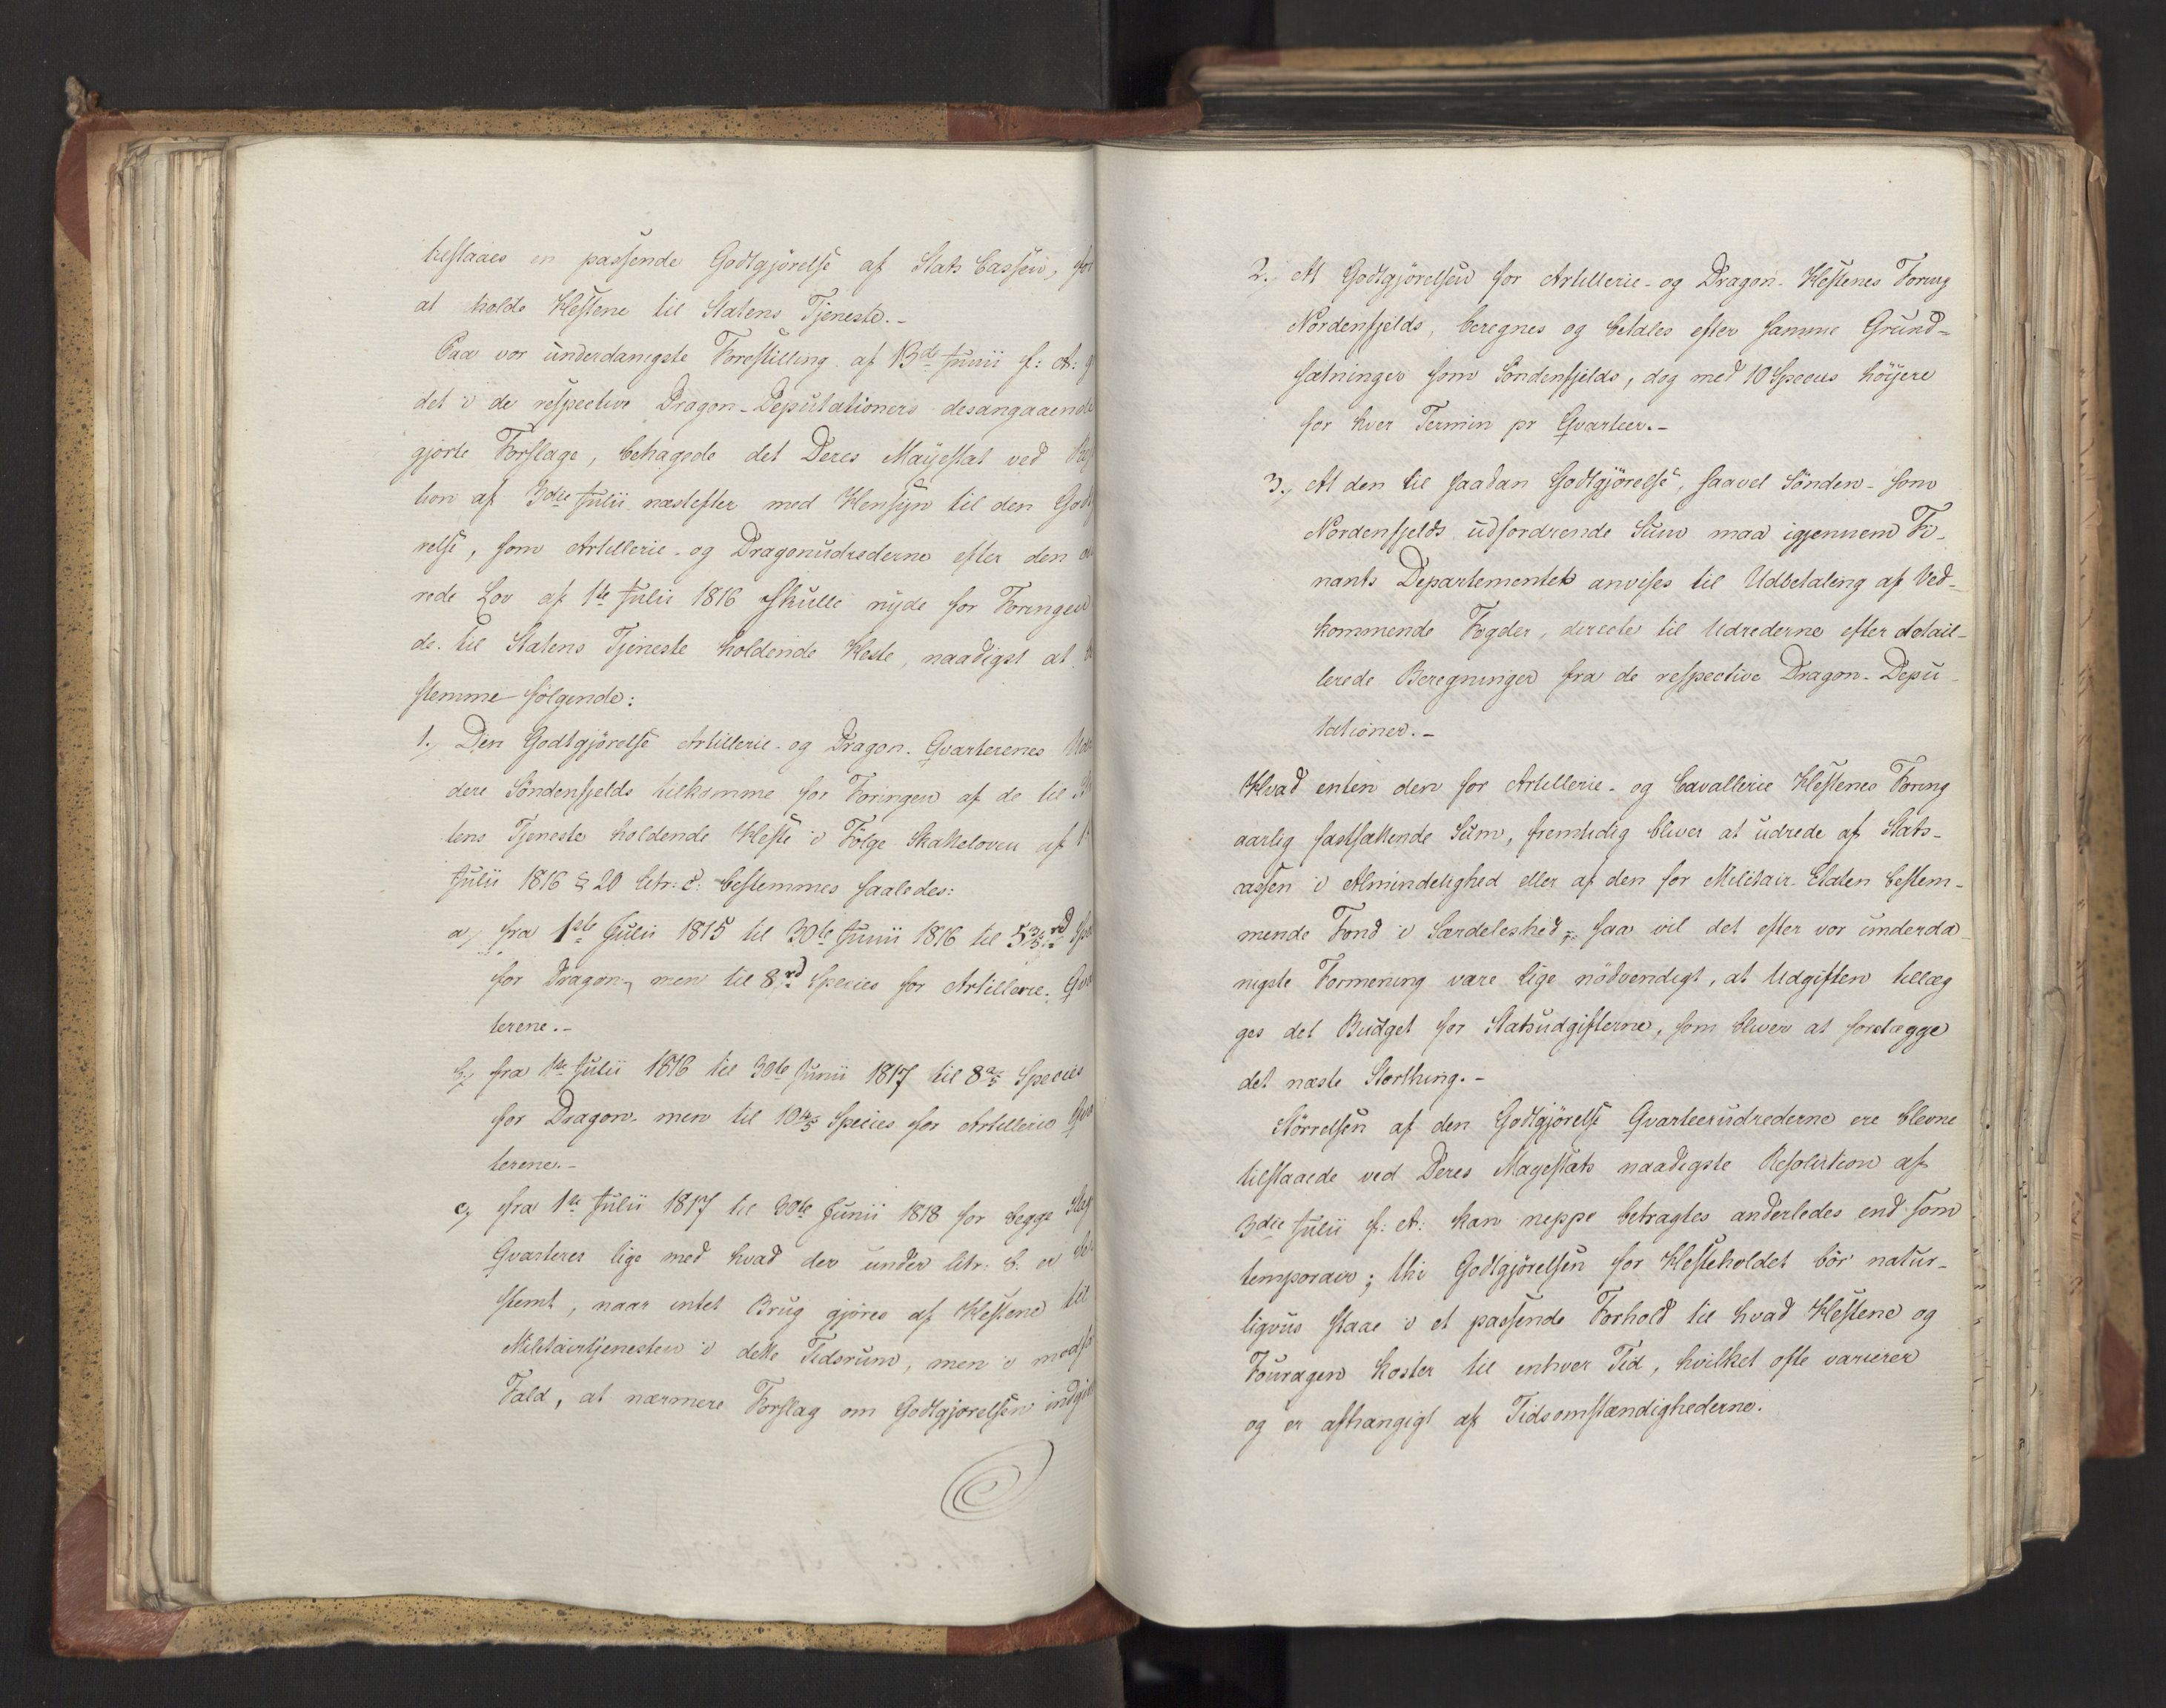 tilstaaes en passende Godtgjörelse af Stats Cassen, for
at holde Hestene til Statens Tjeneste.-
Paa vor underdanigste Forestilling af 13de Junii f: A:
det i de respective Dragon-Deputationers desangaaende
gjorte Forslage, behagede det Deres Majestæt ved
tion af 3die Julii næstefter med Hensyn til den Godtg
relse, som Artillerie- og Dragonudrederne efter den
rede Lov af 1ste Julii 1816 skulle nyde for Foringen
de til Statens Tjeneste holdende Heste, naadigst at
stemme følgende:
1., Den Godtgjörelse Artillerie- og Dragon-Qvarterenes Udre
dere Söndenfjelds tilkomme for Foringen af de til Sta
tens Tjeneste holdende Heste i Fölge Skatteloven af 1
Julii 1816 § 20 litr: c: bestemmes saaledes:
a, fra 1ste Julii 1815 til 30te Junii 1816 til 5 3/5 rd Spe
for Dragon-, men til 8 rd Species for Artillerie-Qvar
terene.-
b, fra 1ste Julii 1816 til 30te Junii 1817 til 8 2/5 Species
for Dragon- men til 10 4/5 Species for Artillerie Qvar
terene.-
c, fra 1ste Julii 1817 til 30te Junii 1818 for begge Slags
Qvarterer lige med hvad der under litr: b. er be
stemt, naar intet Brug gjöres af Hestene til
Militairtjenesten i dette Tidsrum, men i modsa
Fald, at nærmere Forslag om Godtgjörelsen indgi
2., At Godtgjörelsen for Artillerie- og Dragon-Hestenes Foring
Nordenfjelds, beregnes og betales efter samme Grund-
sætninger som Söndenfjelds, dog med 10 Species höiere
for hver Termin pr Qvarteer.-
3., At den til saadan Godtgjörelse, saavel Sönden- som
Nordenfjelds udfordrende Sum maa igjennem Fi-
nants Departementet anvises til Udbetaling af Ved-
kommende Fogder, directe til Udrederne efter detail-
lerede Beregninger fra de respective Dragon-Depu-
tationer.-
Hvad enten den for Artillerie- og Cavallerie Hestenes Foring
aarlig fastsættende Sum, fremtidig bliver at udrede af Stats-
cassen i Almindelighed eller af den for Militair-Etaten bestem-
mende Fond i Særdeleshed, saa vil det efter vor underda
nigste Formening være lige nödvendigt, at Udgiften tillæg
ges det Budget for Statsudgifterne, som bliver at forelægge
det næste Storthing.-
Störrelsen af den Godtgjörelse Qvarteerudrederne ere blevne
tilstaaede ved Deres Majestæts naadigste Resolution af
3die Julii f: A: kan neppe betragtes anderledes end som
temporair; thi Godtgjörelsen for Hesteholdet bör natur-
ligviis staae i et passende Forhold til hvad Hestene og
Fouragen koster til enhver Tid, hvilket ofte varierer
og er afhængigt af Tidsomstændighederne.